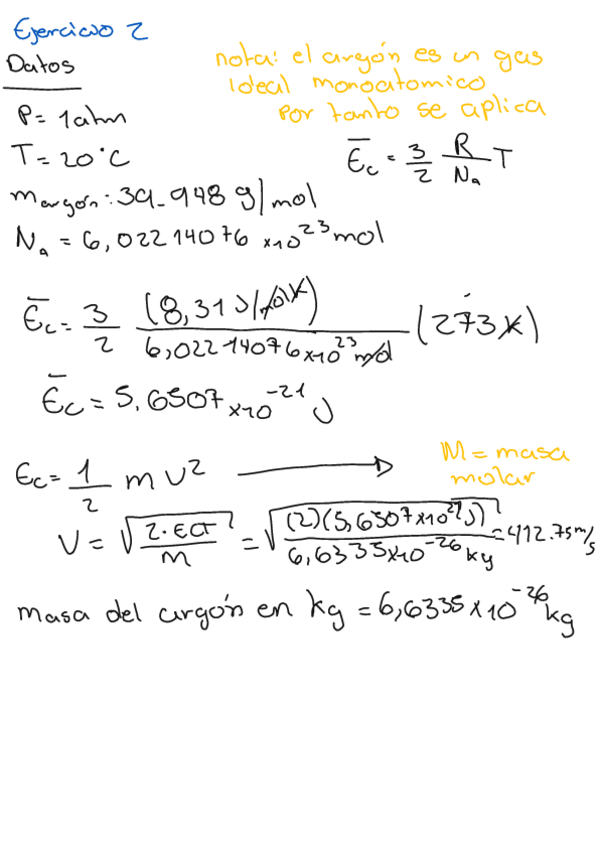 Ejercicio 2
Datos
nota: el argón es un gas
ideal monoatomico
por tanto se aplica
P= 1atm
T= 20°C
m argón: 39.948 g/mol
Na = 6,02214076 x10^23 mol
Ēc = 3/2 R/Na T
Ēc = 3/2 (8,31 J/molK)/(6,02214076x10^23 mol) (273K)
Ēc = 5.6507 x10^-21 J
Ec = 1/2 m v²
M = masa
molar
V = √(2·Ec/m) = √((2)(5,6507x10^-21 J)/(6,6335x10^-26 kg)) = 412.75m/s
masa del argón en kg = 6,6335 x 10^-26 kg